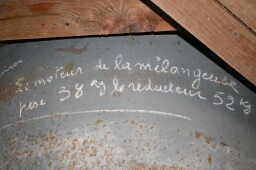 Le moteur de la mélangeuse
pèse 38 Kg le réducteur 52 Kg